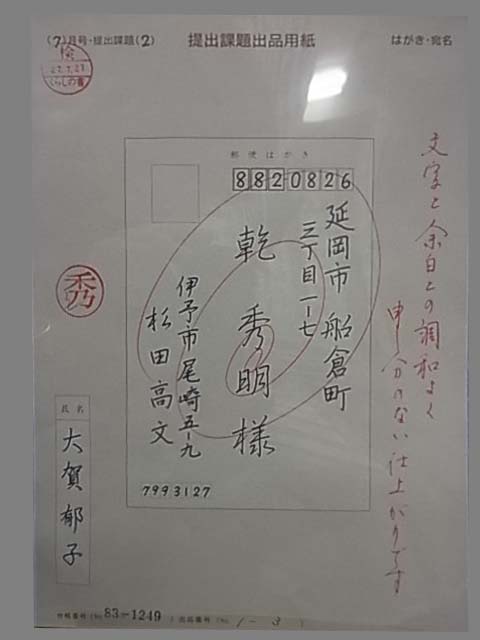 (7)月号・提出課題(2)
提出課題出品用紙
はがき・宛名
検
27.7.27
くらしの書
文字と余白との調和よく
申し分のない仕上がりです
郵便はがき
8820826
延岡市 船倉町
三丁目一ー七
乾 秀明様
伊予市尾崎五ー九
杉田高文
7993127
秀
氏名
大賀郁子
83-1249
出品番号(No. 1-3 )